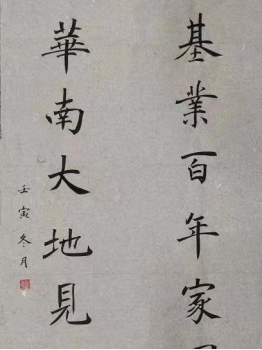 基業百年家
華南大地見
壬寅冬月